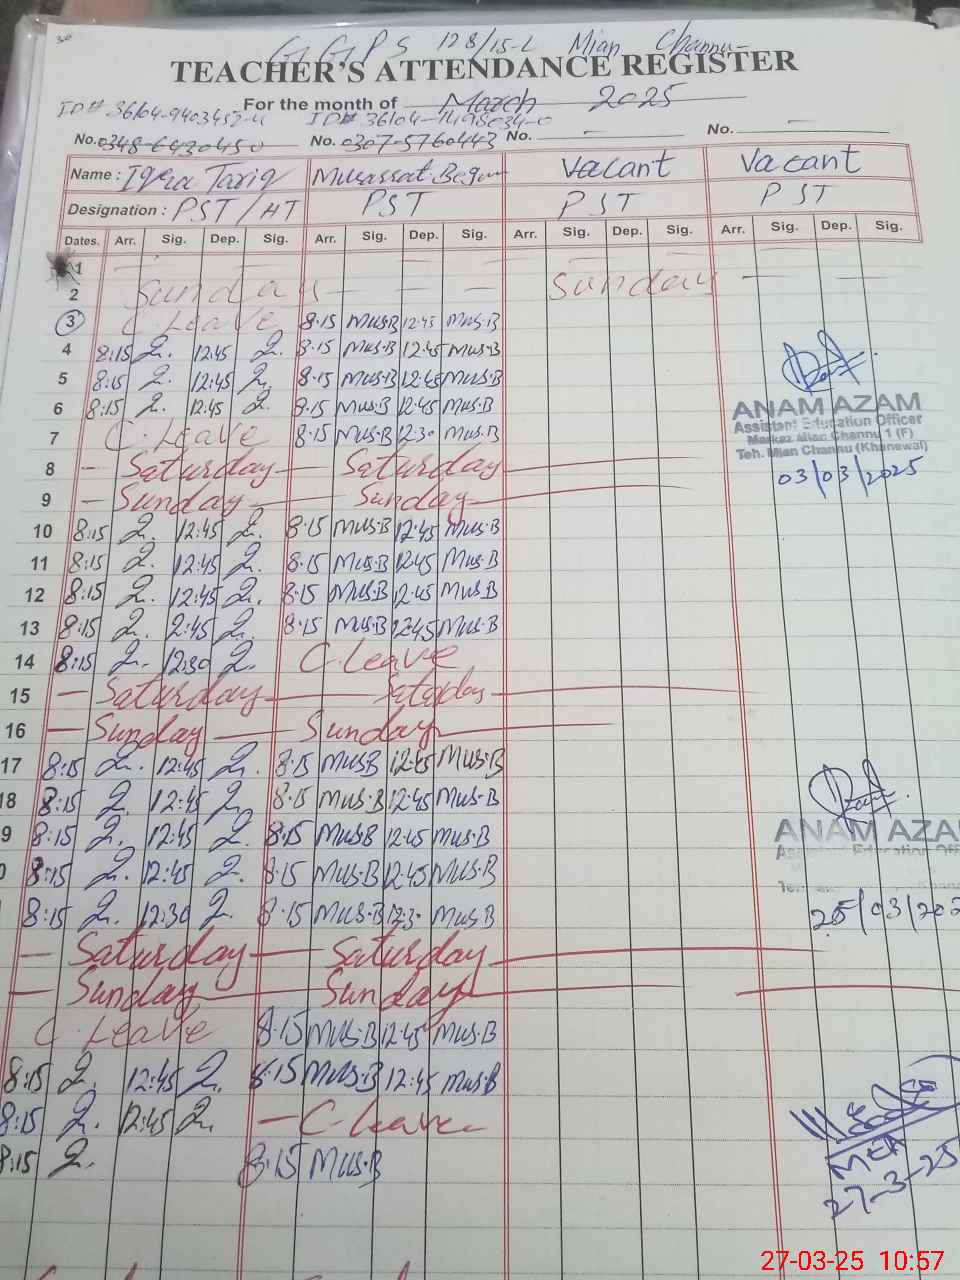 30
G.G.P.S 128/15-L Mian Channu
TEACHER'S ATTENDANCE REGISTER
For the month of March 2025
ID# 36104-9403452-4 ID# 36104-7498034-0
No. 0348-6430450 No. 0307-5760443 No. — No. —
Name : Iqra Tariq Musassat Begum Vacant Vacant
Designation : PST/HT PST PST PST
Dates. Arr. Sig. Dep. Sig. Arr. Sig. Dep. Sig. Arr. Sig. Dep. Sig. Arr. Sig. Dep. Sig.
1
2 Sunday Sunday
3 C Leave 8.15 Mus.B 12:45 Mus.B
4 8:15 12:45 8.15 Mus.B 12:45 Mus.B
5 8:15 12:45 8.15 Mus.B 12:45 Mus.B
6 8:15 12:45 8.15 Mus.B 12:45 Mus.B
7 C.Leave 8.15 Mus.B 12:30 Mus.B
ANAM AZAM
Assistant Education Officer
Markaz Mian Channu 1 (F)
Teh. Mian Channu (Khanewal)
03/03/2025
8 — Saturday — Saturday
9 — Sunday — Sunday
10 8:15 12:45 8.15 Mus.B 12:45 Mus.B
11 8:15 12:45 8.15 Mus.B 12:45 Mus.B
12 8:15 12:45 8.15 Mus.B 12:45 Mus.B
13 8:15 2:45 8.15 Mus.B 12:45 Mus.B
14 8:15 12:30 C.Leave
15 — Saturday — Saterday
16 — Sunday — Sunday
17 8:15 12:45 8.15 Mus.B 12:45 Mus.B
18 8:15 12:45 8.15 Mus.B 12:45 Mus.B
9 8:15 12:45 8.15 Mus.B 12:45 Mus.B
0 8:15 12:45 8.15 Mus.B 12:45 Mus.B
8:15 12:30 8.15 Mus.B 12:3 Mus.B
ANAM AZA
Assistant Education Off
25/03/202
— Saturday — Saturday
— Sunday — Sunday
C Leave 8.15 Mus.B 12:45 Mus.B
8:15 12:45 8.15 Mus.B 12:45 Mus.B
8:15 12:45 — C.Leave
8:15 8.15 Mus.B
MEA
27-3-25
27-03-25 10:57